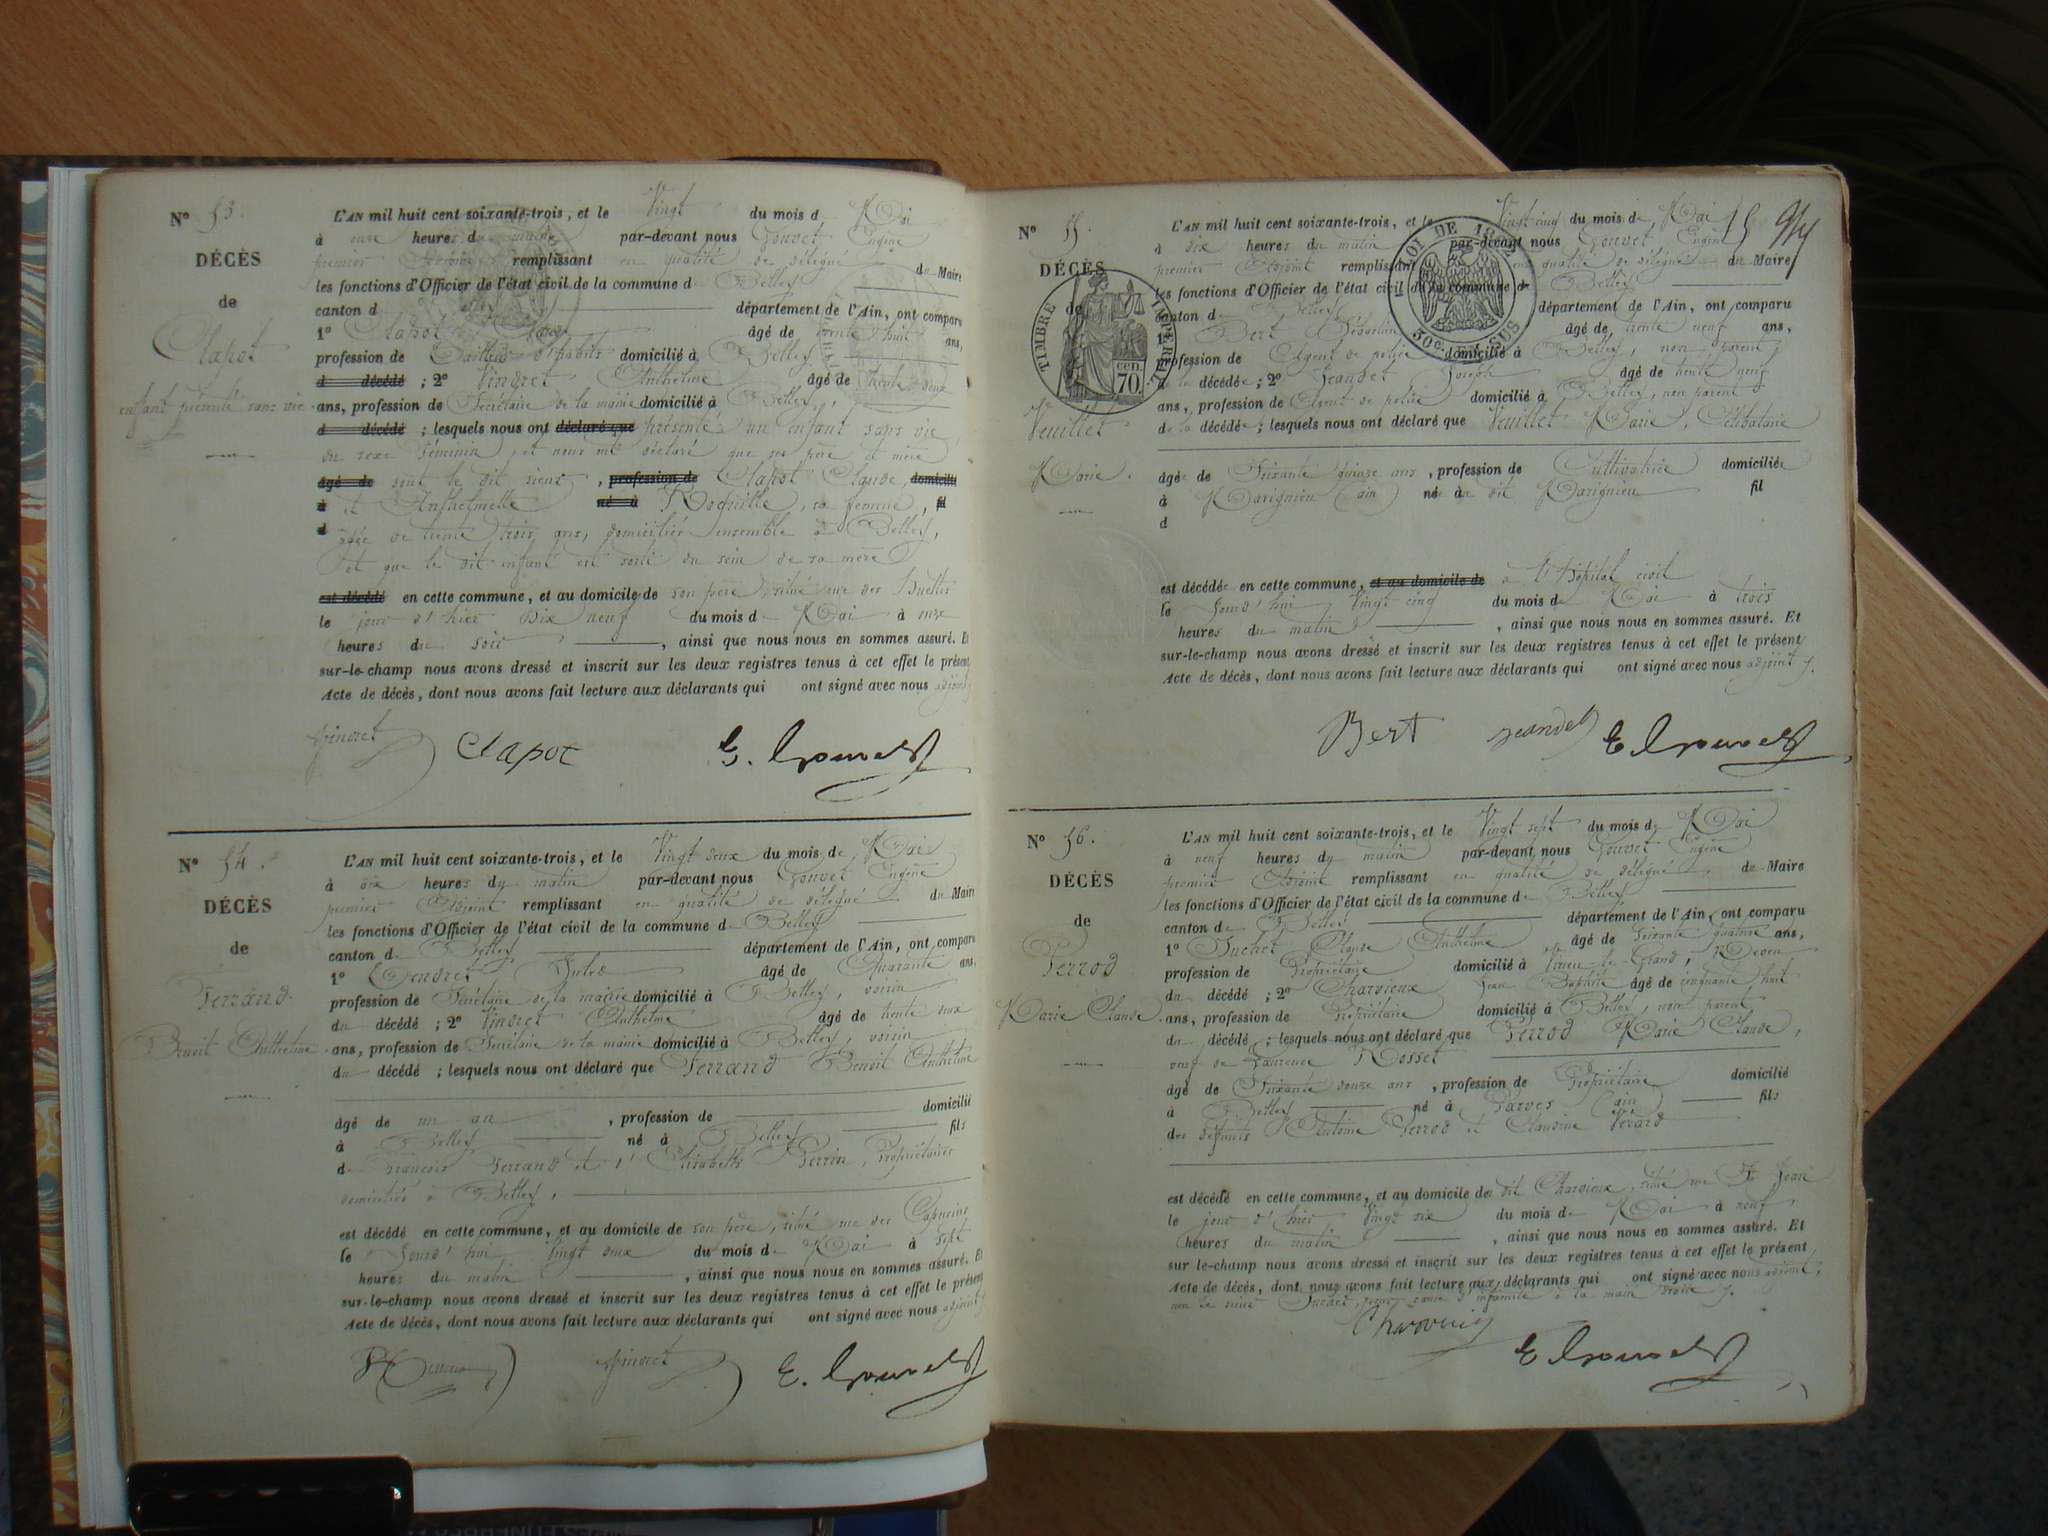 N° 53.
DÉCÈS
de
Clapot
enfant présenté sans vie
L'AN mil huit cent soixante-trois, et le Vingt du mois de Mai
à onze heures du matin par-devant nous Gouvet Eugène
premier Adjoint remplissant en qualité de délégué du Maire
les fonctions d'Officier de l'état civil de la commune de Belley
canton de Belley département de l'Ain, ont comparu
1° Clapot Claude âgé de trente huit ans,
profession de Tailleur d'habits domicilié à Belley
d décédé ; 2° Vindret Anthelme âgé de trente deux
ans, profession de Secrétaire de la mairie domicilié à Belley,
d décédé ; lesquels nous ont déclaré que présenté un enfant sans vie
du sexe féminin, et nous ont déclaré que ses père et mère
âgé de sont le dit sieur , profession de Clapot Claude, domicilié
à et Anthelmette né à Roquille, sa femme, fil
d âgée de trente trois ans, domiciliés ensemble à Belley,
et que le dit enfant est sorti du sein de sa mère
est décédé en cette commune, et au domicile de son père, situé rue des
le jour d'hier Dix neuf du mois de Mai à onze
heures du soir , ainsi que nous nous en sommes assuré. Et
sur-le-champ nous avons dressé et inscrit sur les deux registres tenus à cet effet le présent
Acte de décès, dont nous avons fait lecture aux déclarants qui ont signé avec nous adjoint
Vindret Clapot E. Gouvet
N° 54.
DÉCÈS
de
Ferrand
Benoit Anthelme
L'AN mil huit cent soixante-trois, et le Vingt deux du mois de Mai
à dix heures du matin par-devant nous Gouvet Eugène
premier Adjoint remplissant en qualité de délégué du Maire
les fonctions d'Officier de l'état civil de la commune de Belley
canton de Belley département de l'Ain, ont comparu
1° Jules âgé de Quarante ans,
profession de Secrétaire de la mairie domicilié à Belley, voisin
du décédé ; 2° Vindret Anthelme âgé de trente deux
ans, profession de Secrétaire de la mairie domicilié à Belley, voisin
du décédé ; lesquels nous ont déclaré que Ferrand Benoit Anthelme
âgé de un an , profession de domicilié
à Belley né à Belley fils
de François Ferrand et d'Elisabeth Perrin, Propriétaires
domiciliés à Belley,
est décédé en cette commune, et au domicile de son père, situé rue des Capucins
le Jourd'hui Vingt deux du mois de Mai à sept
heures du matin , ainsi que nous nous en sommes assuré. Et
sur-le-champ nous avons dressé et inscrit sur les deux registres tenus à cet effet le présent
Acte de décès, dont nous avons fait lecture aux déclarants qui ont signé avec nous adjoint
Vindret E. Gouvet
15
N° 55.
DÉCÈS
de
Veuillet
Marie.
TIMBRE IMPERIAL
CEN. 70
LOI DE 1862
50c. EN SUS
L'AN mil huit cent soixante-trois, et le Vingt cinq du mois de Mai
à dix heures du matin par-devant nous Gouvet Eugène
premier Adjoint remplissant en qualité de délégué du Maire
les fonctions d'Officier de l'état civil de la commune de Belley
canton de Belley département de l'Ain, ont comparu
1° Bert âgé de trente neuf ans,
profession de Agent de police domicilié à Belley, non parent
de la décédée ; 2° Jeandet Joseph âgé de trente neuf
ans, profession de Agent de police domicilié à Belley, non parent
de la décédée ; lesquels nous ont déclaré que Veuillet Marie, Célibataire
âgée de Soixante quinze ans , profession de Cultivatrice domiciliée
à Marignieu (ain) né à au dit Marignieu fil
d
est décédée en cette commune, et au domicile de à l'Hôpital civil
le Jourd'hui Vingt cinq du mois de Mai à trois
heures du matin , ainsi que nous nous en sommes assuré. Et
sur-le-champ nous avons dressé et inscrit sur les deux registres tenus à cet effet le présent
Acte de décès, dont nous avons fait lecture aux déclarants qui ont signé avec nous adjoint
Bert Jeandet E. Gouvet
N° 56.
DÉCÈS
de
Perrod
Marie Claude
L'AN mil huit cent soixante-trois, et le Vingt sept du mois de Mai
à neuf heures du matin par-devant nous Gouvet Eugène
premier Adjoint remplissant en qualité de délégué du Maire
les fonctions d'Officier de l'état civil de la commune de Belley
canton de Belley département de l'Ain, ont comparu
1° Suchet Claude Anthelme âgé de Soixante quatorze ans,
profession de Propriétaire domicilié à Virieu le Grand, Neveu
du décédé ; 2° Charvieux Jean Baptiste âgé de cinquante huit
ans, profession de Propriétaire domicilié à Belley, non parent
du décédé ; lesquels nous ont déclaré que Perrod Marie Claude,
veuf de Laurence Rosset
âgé de Soixante douze ans , profession de Propriétaire domicilié
à Belley né à Parves (ain) fils
des défunts Antoine Perrod et Claudine
est décédé en cette commune, et au domicile de dit Charvieux, situé rue St Jean
le jour d'hier Vingt six du mois de Mai à neuf
heures du matin , ainsi que nous nous en sommes assuré. Et
sur le-champ nous avons dressé et inscrit sur les deux registres tenus à cet effet le présent
Acte de décès, dont nous avons fait lecture aux déclarants qui ont signé avec nous adjoint,
non le sieur Suchet, pour cause d'infirmité à la main droite
E. Gouvet